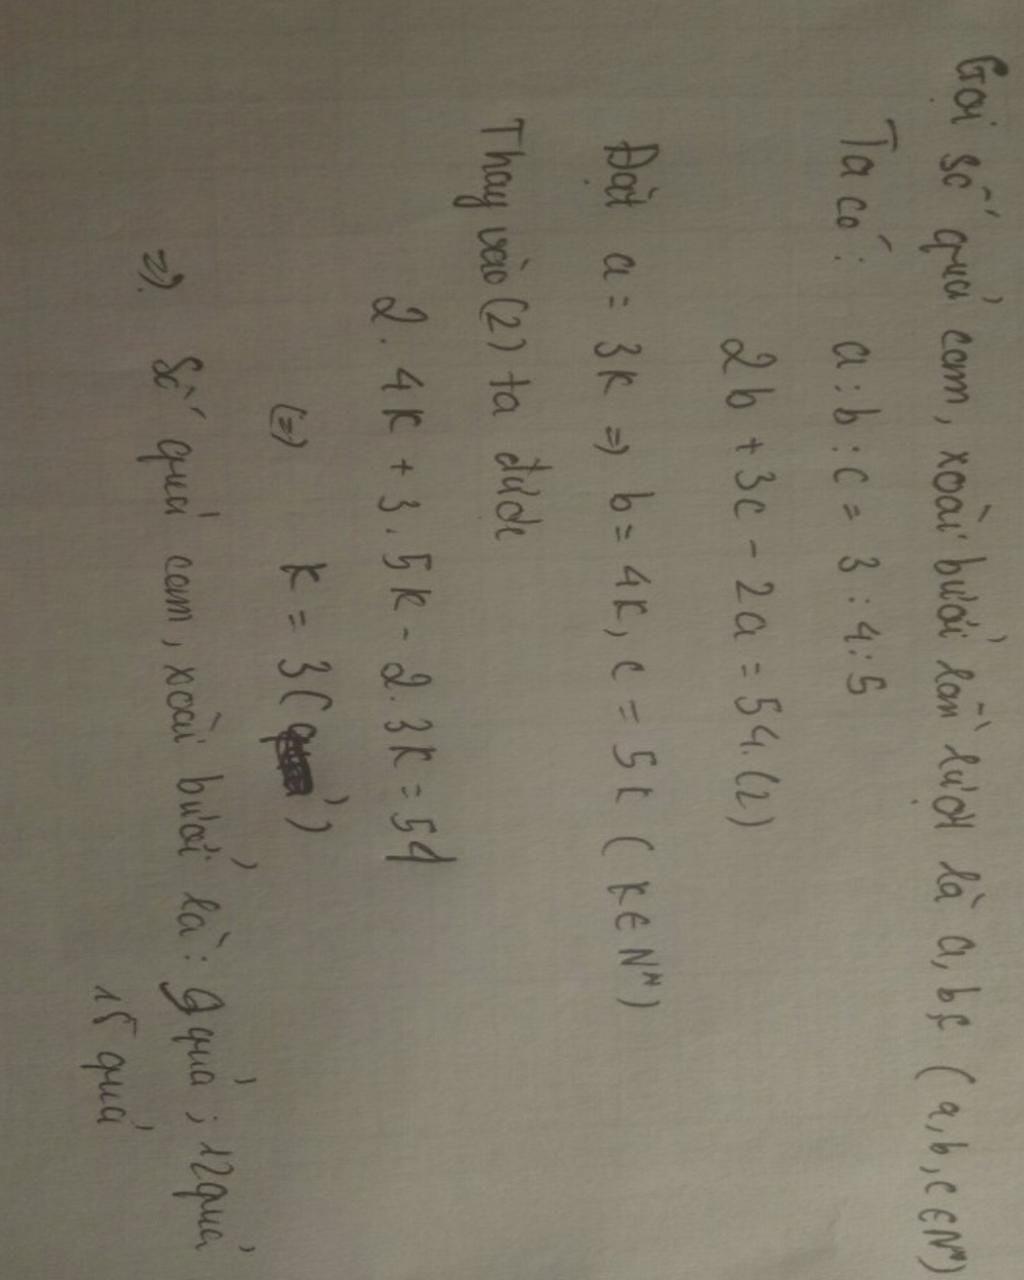 Gọi số quả cam, xoài bưởi lần lượt là a, b, c (a, b, c ∈ N*)
Ta có: a : b : c = 3 : 4 : 5
2b + 3c - 2a = 54. (2)
Đặt a = 3k ⇒ b = 4k, c = 5k (k ∈ N*)
Thay vào (2) ta được
2. 4k + 3. 5k - 2. 3k = 54
(=) k = 3 ( )
⇒ Số quả cam, xoài bưởi là: 9 quả; 12 quả
15 quả